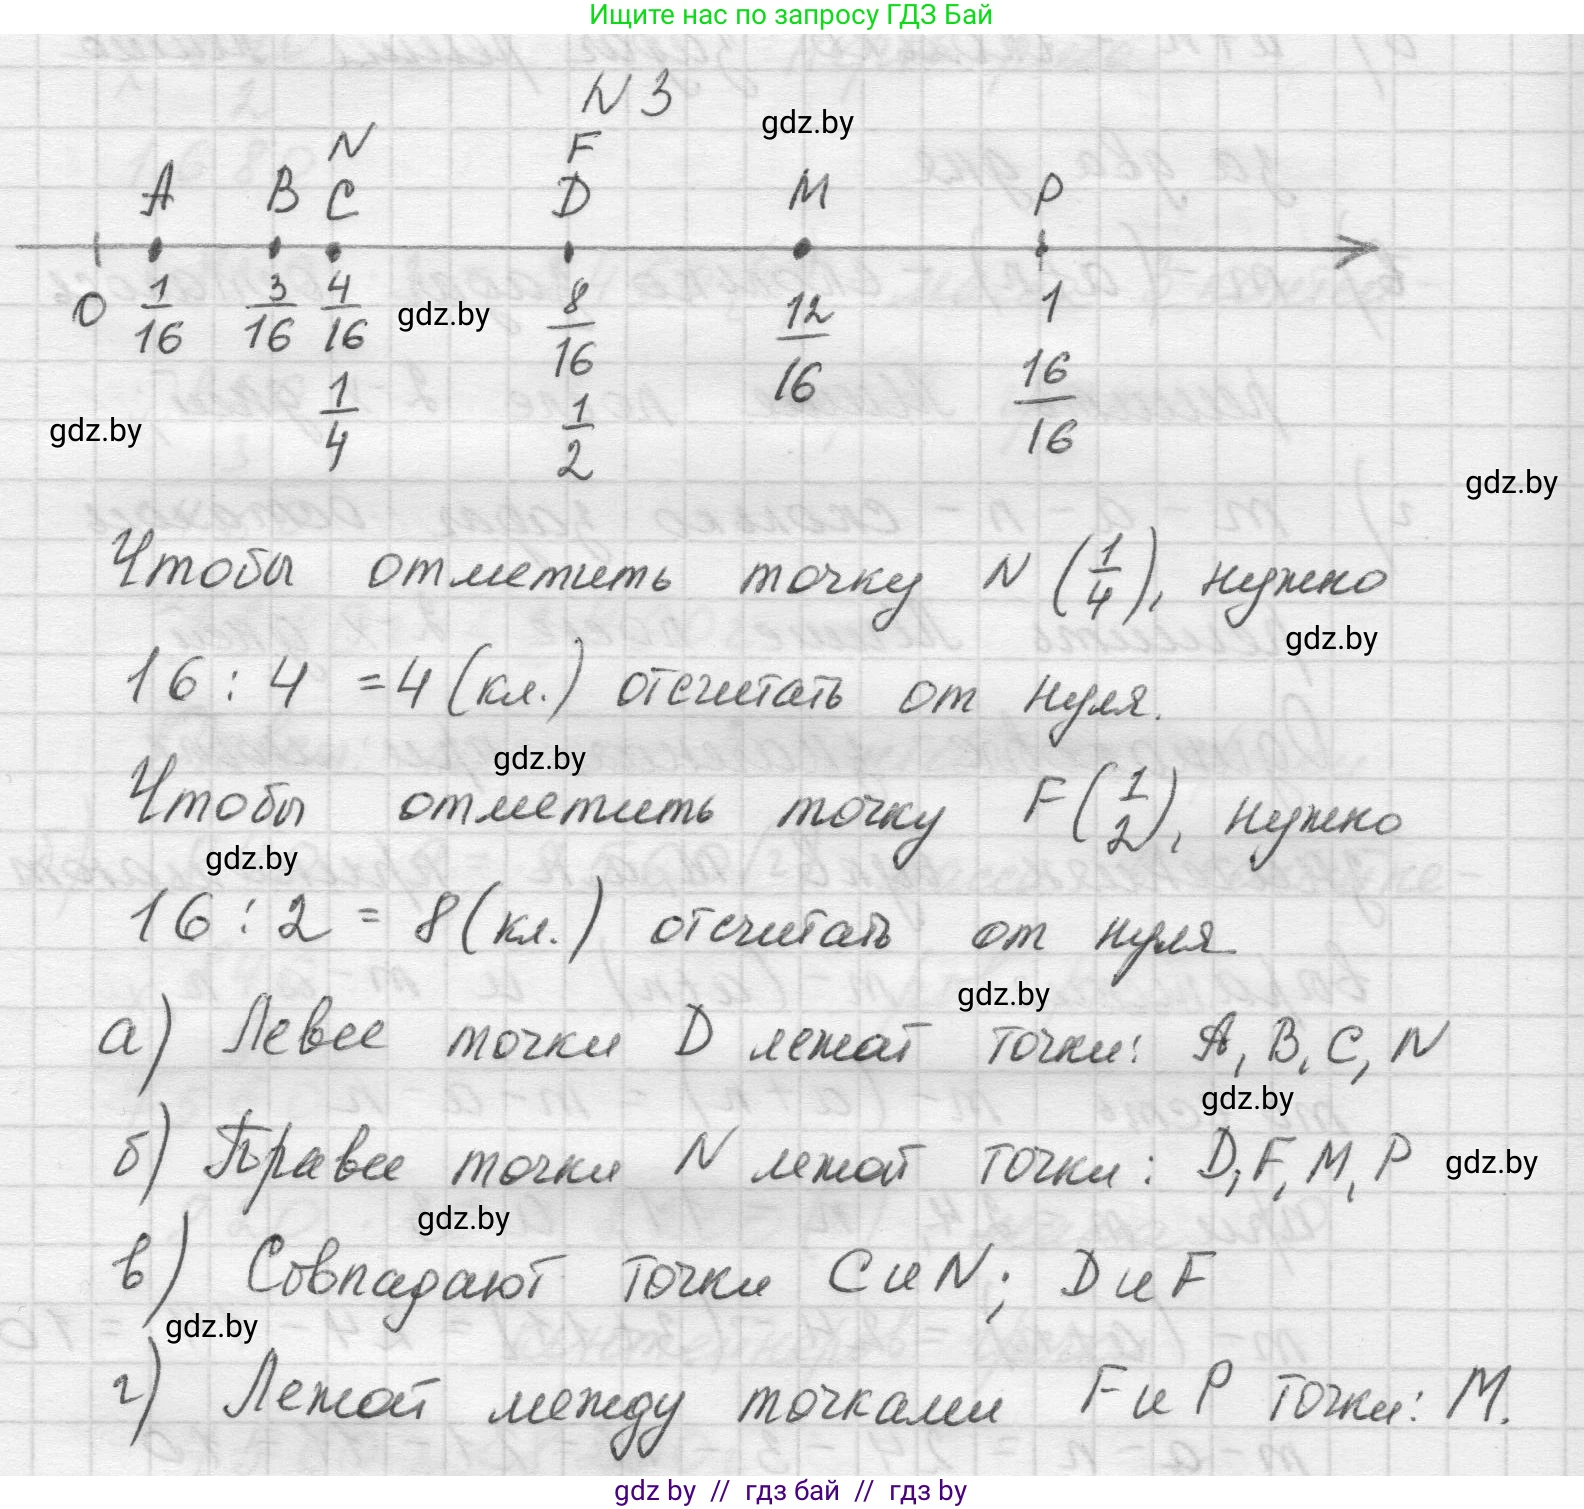 Ищите нас по запросу ГДЗ Бай
N 3
gdz.by
N F
A B C D M P
0 1/16 3/16 4/16 8/16 12/16 1
gdz.by
1/4 1/2 16/16
gdz.by
gdz.by
Чтобы отметить точку N (1/4), нужно
gdz.by
16 : 4 = 4 (кл.) отсчитать от нуля.
gdz.by
Чтобы отметить точку F (1/2), нужно
gdz.by
16 : 2 = 8 (кл.) отсчитать от нуля.
gdz.by
а) Левее точки D лежат точки: A, B, C, N
gdz.by
б) Правее точки N лежат точки: D, F, M, P gdz.by
gdz.by
в) Совпадают точки C и N; D и F
gdz.by
г) Лежат между точками F и P точки: M.
gdz by // гдз бай // гдз by